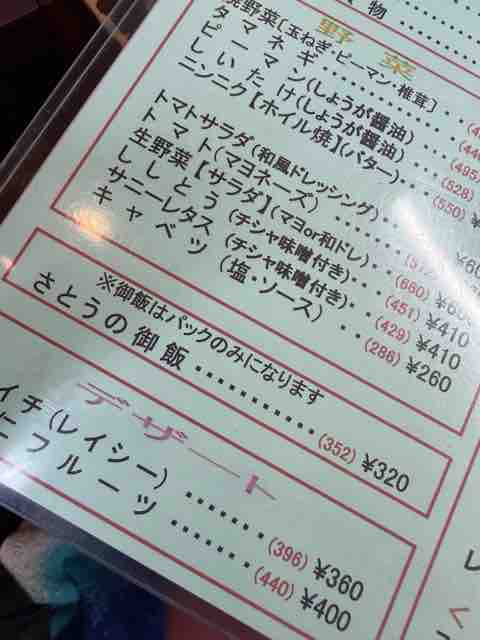 物
野菜
焼野菜[玉ねぎ・ピーマン・椎茸]
タマネギ
ピーマン(しょうが醤油)
しいたけ(しょうが醤油)
ニンニク【ホイル焼】(バター) (528)
トマトサラダ(和風ドレッシング) (550)
トマト(マヨネーズ)
生野菜【サラダ】(マヨor和ドレ) (660)
ししとう(チシャ味噌付き) (451) ¥410
サニーレタス(チシャ味噌付き) (429) ¥410
キャベツ(塩・ソース) (286) ¥260
※御飯はパックのみになります
さとうの御飯 (352) ¥320
デザート
イチ(レイシー) (396) ¥360
フルーツ (440) ¥400